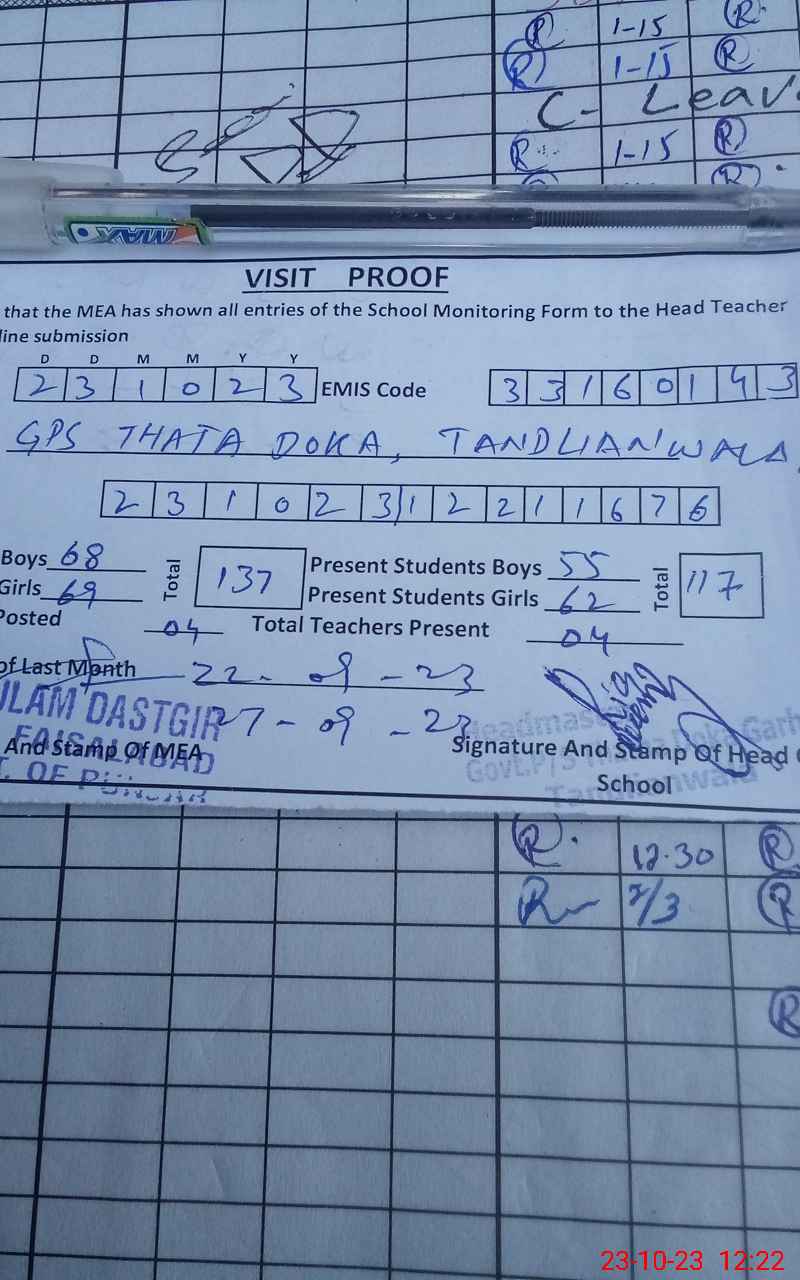 R 1-15 R
R 1-15 R
C- Leav
R 1-15 R
R
MAX
VISIT PROOF
that the MEA has shown all entries of the School Monitoring Form to the Head Teacher
line submission
D D M M Y Y
2 3 1 0 2 3 EMIS Code 3 3 1 6 0 1 4 3
GPS THATA DOKA, TANDLIANWALA.
2 3 1 0 2 3 1 2 2 1 1 6 7 6
Boys 68 Total 137 Present Students Boys 55 Total 117
Girls 69 Present Students Girls 62
Posted 04 Total Teachers Present 04
of Last Month 22-09-23
ULAM DASTGIR 27-09-23 Headmas
FAISALABAD
And Stamp Of MEA Signature And Stamp Of Head
Govt.P/S Thatta Doka Garh
T. OF
School
Tandlianwala
R 12.30 R
R 2/3 R
R
23-10-23 12:22